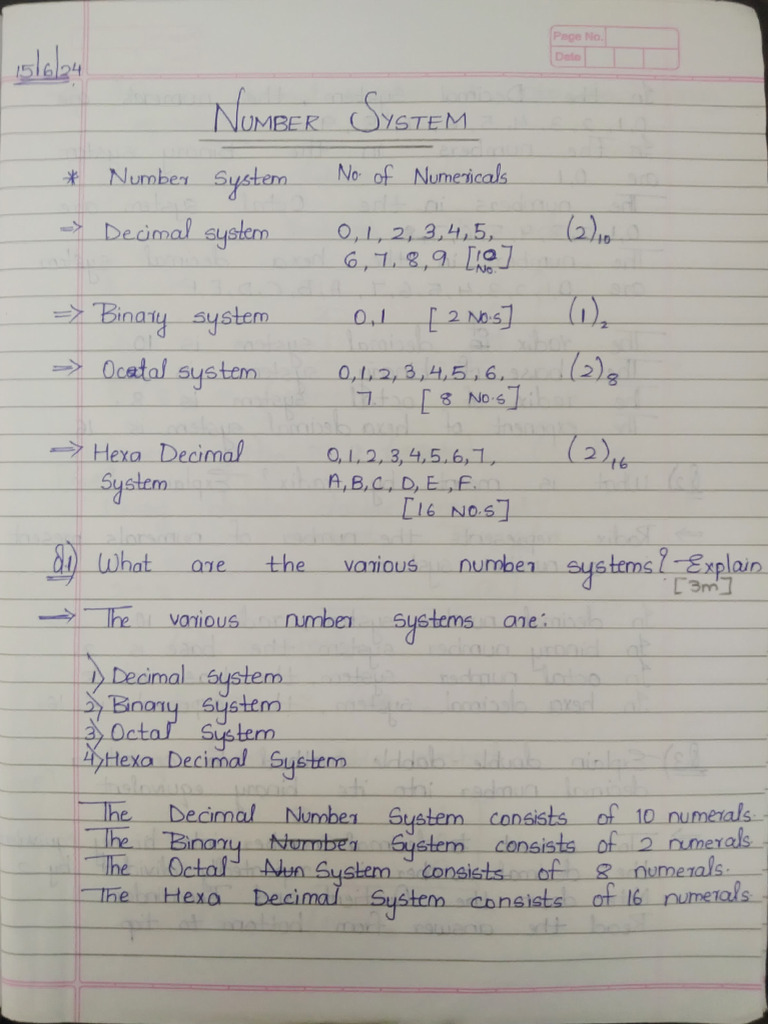 Page No.
Date
15/6/24
NUMBER SYSTEM
* Number System No. of Numericals
⇒ Decimal system 0, 1, 2, 3, 4, 5, (2)₁₀
6, 7, 8, 9 [10 No.]
⇒ Binary system 0, 1 [2 NO.S] (1)₂
⇒ Ocatal system 0, 1, 2, 3, 4, 5, 6, (2)₈
7. [8 NO.S]
⇒ Hexa Decimal 0, 1, 2, 3, 4, 5, 6, 7, (2)₁₆
System A, B, C, D, E, F.
[16 NO.S]
Q1) What are the various number systems? Explain
[3m]
→ The various number systems are:
1) Decimal system
2) Binary system
3) Octal System
4) Hexa Decimal System
The Decimal Number System consists of 10 numerals.
The Binary Number System consists of 2 numerals
The Octal Nun System consists of 8 numerals.
The Hexa Decimal System consists of 16 numerals